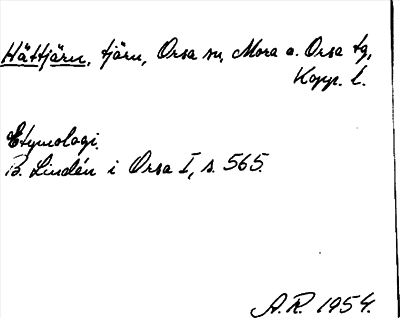 Hättjärn, tjärn, Orsa sn, Mora o. Orsa tg,
Kopp. l.
Etymologi.
B. Lindén i Orsa I, s. 565.
A.R. 1954.